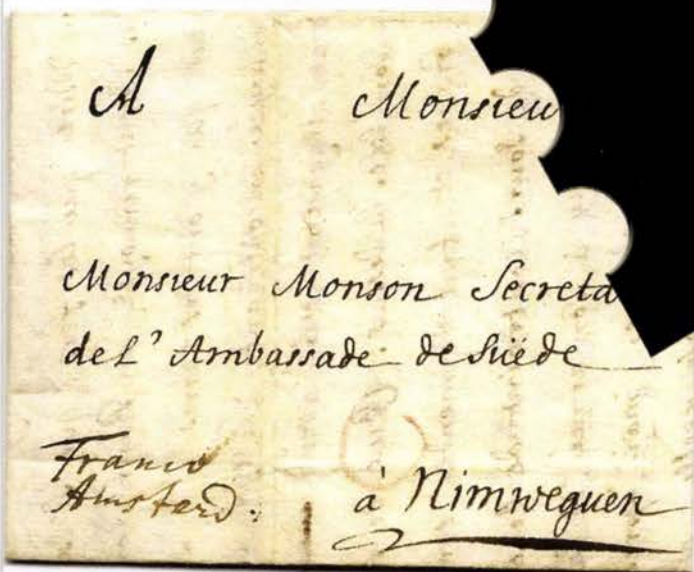 A Monsieu
Monsieur Monson Secreta
de L'Ambassade de Suëde
Franco
Amstard:
à Nimweguen